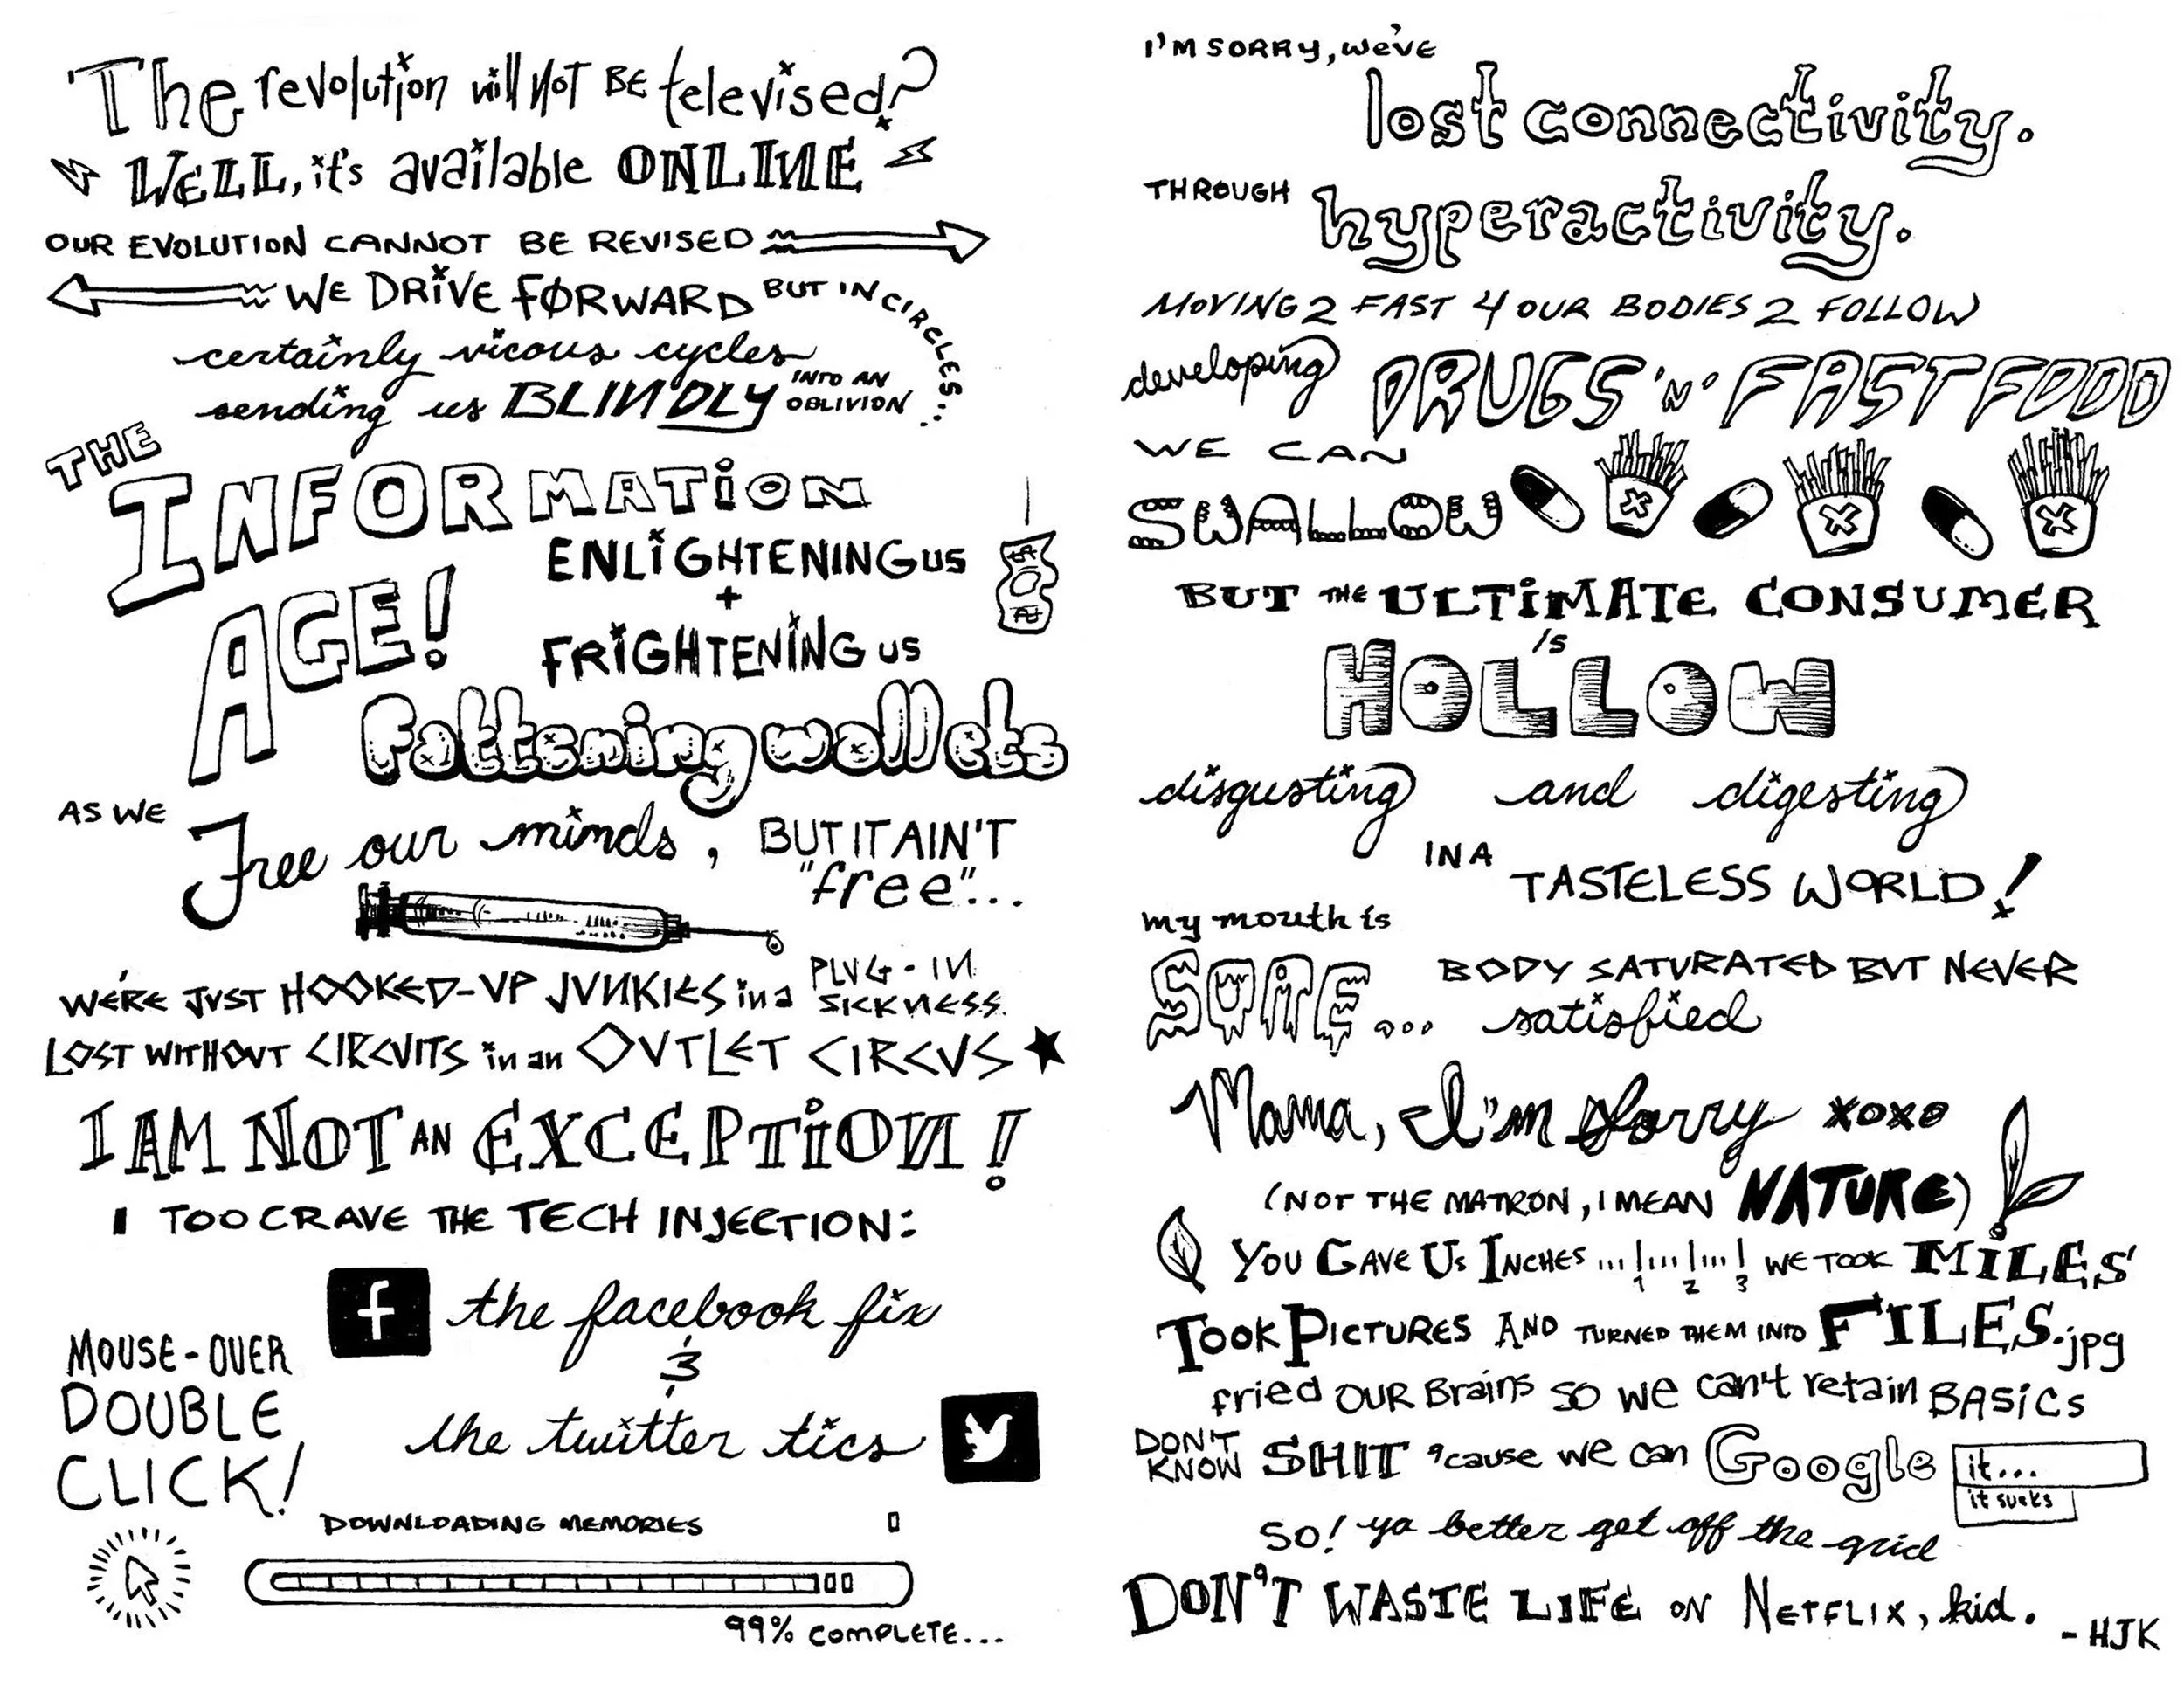 The revolution will NOT BE televised?
WELL, it's available ONLINE
OUR EVOLUTION CANNOT BE REVISED
WE DRIVE FORWARD BUT IN CIRCLES...
certainly vicous cycles
sending us BLINDLY INTO AN OBLIVION
THE
INFORMATION
AGE!
ENLIGHTENING US
+
FRIGHTENING US
fattening wallets
AS WE
Free our minds, BUT IT AIN'T
"free"...
WE'RE JUST HOOKED-UP JUNKIES in a PLUG-IN SICKNESS.
LOST WITHOUT CIRCUITS in an OUTLET CIRCUS
I AM NOT AN EXCEPTION!
I TOO CRAVE THE TECH INJECTION:
f the facebook fix
&
the twitter tics
MOUSE-OVER
DOUBLE
CLICK!
DOWNLOADING MEMORIES
99% COMPLETE...
I'M SORRY, we've
lost connectivity.
THROUGH hyperactivity.
MOVING 2 FAST 4 OUR BODIES 2 FOLLOW
developing DRUGS 'N' FAST FOOD
WE CAN
SWALLOW
BUT THE ULTIMATE CONSUMER
IS
HOLLOW
disgusting and digesting
IN A
TASTELESS WORLD!
my mouth is
SORE... BODY SATURATED BUT NEVER
satisfied
Mama, I'm Sorry xoxo
(NOT THE MATRON, I MEAN NATURE)
YOU GAVE US INCHES ... 1 2 3 WE TOOK MILES
TOOK PICTURES AND TURNED THEM INTO FILES.jpg
fried OUR Brains SO we can't retain BASiCS
DON'T KNOW SHIT 'cause we can Google it...
it sucks
SO! ya better get off the grid
DON'T WASTE LIFE ON NETFLIX, kid.
- HJK